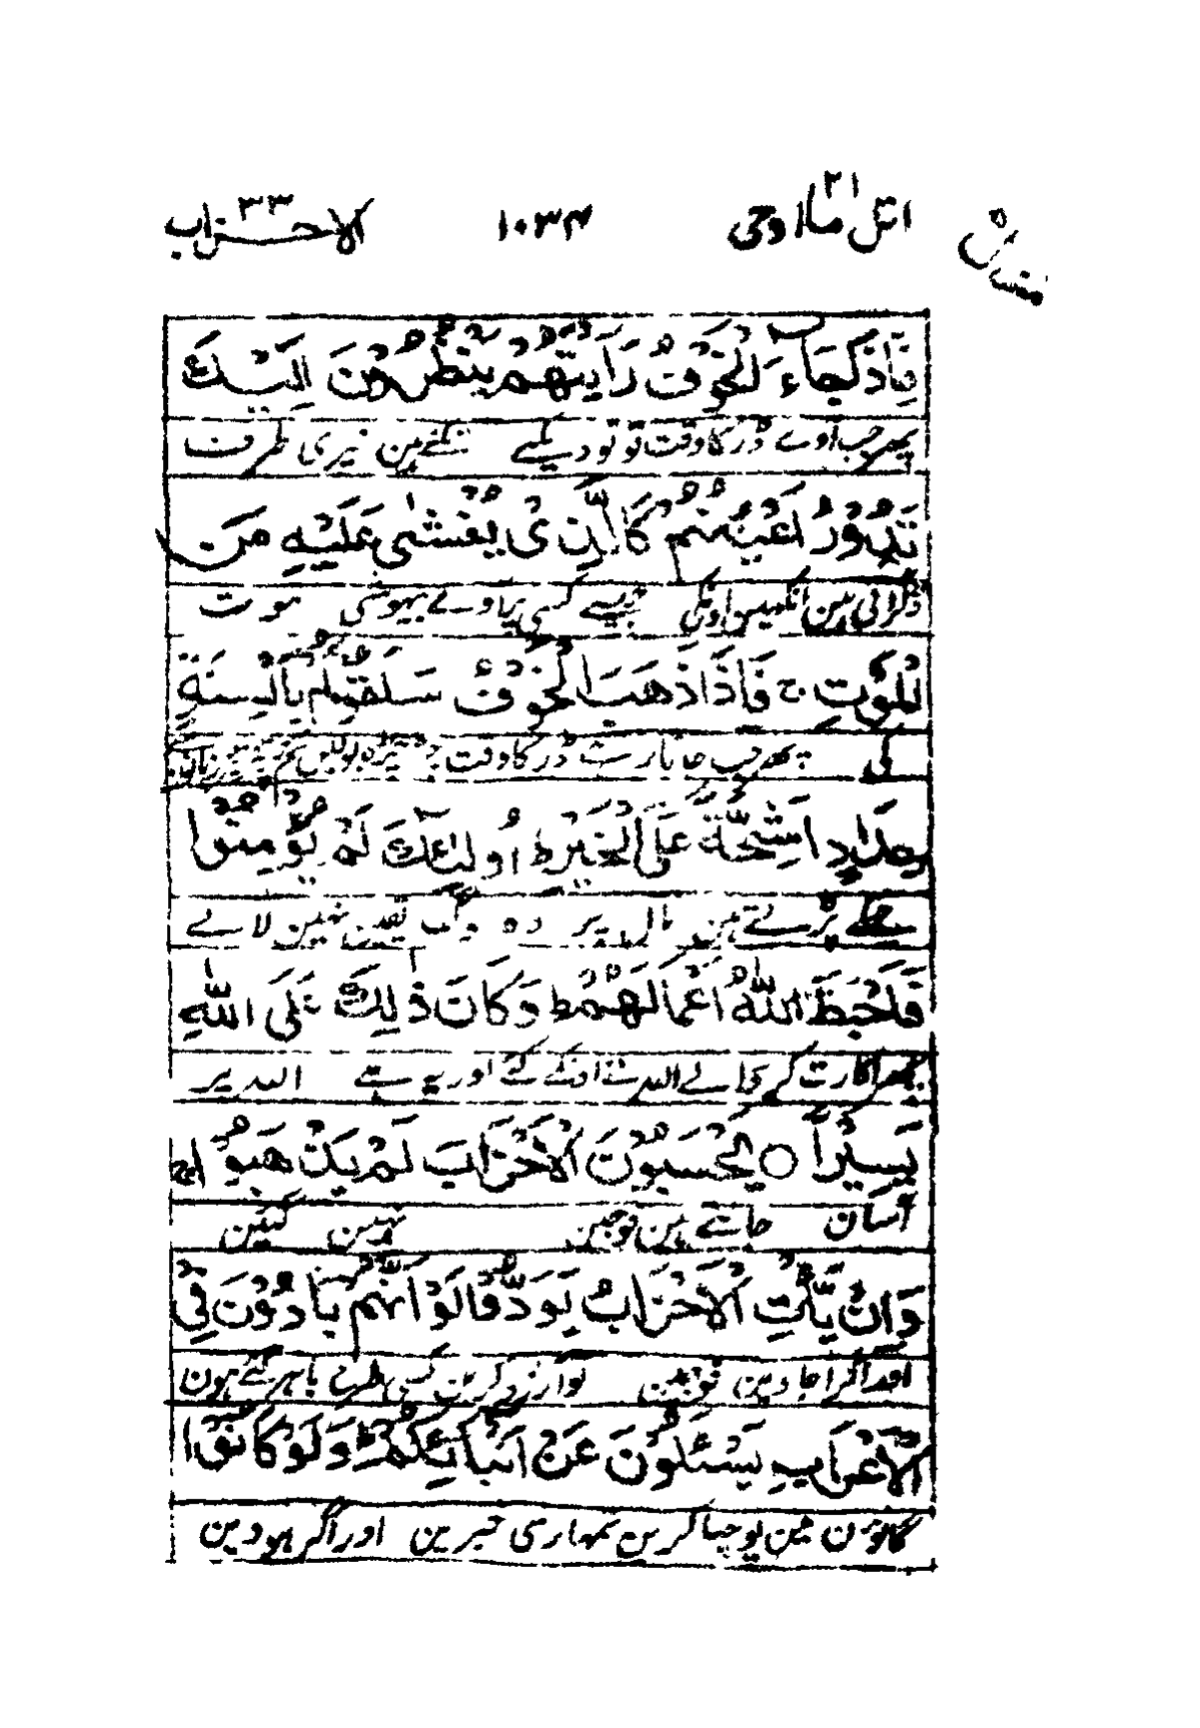 منزل ٥
اتل ما اوحی ٢١ ١٠٣٤ الاحزاب ٣٣
فَاِذَا جَآءَ الْخَوْفُ رَاَیْتَهُمْ یَنْظُرُوْنَ اِلَیْكَ
پھر جب آوے ڈر کا وقت تو تو دیکھے تکتے ہین تیری طرف
تَدُوْرُ اَعْیُنُهُمْ كَالَّذِیْ یُغْشٰی عَلَیْهِ مِنَ
ڈگراتی ہین آنکھین اونکی جیسے کسی پر آوے بیہوشی موت
الْمَوْتِ ج فَاِذَا ذَهَبَ الْخَوْفُ سَلَقُوْكُمْ بِاَلْسِنَةٍ
کی پھر جب جاتا رہے ڈر کا وقت
حِدَادٍ اَشِحَّةً عَلَی الْخَیْرِ ط اُولٰٓئِكَ لَمْ یُؤْمِنُوْا
ڈھکے پڑتے ہین مال پر وہ لوگ یقین نہین لائے
فَاَحْبَطَ اللّٰهُ اَعْمَالَهُمْ ط وَكَانَ ذٰلِكَ عَلَی اللّٰهِ
پھر اکارت کر ڈالے اللہ نے اونکے کئے اور یہ ہے اللہ پر
یَسِیْرًا ○ یَحْسَبُوْنَ الْاَحْزَابَ لَمْ یَذْهَبُوْا ج
آسان جانتے ہین فوجین نہین گئین
وَاِنْ یَّاْتِ الْاَحْزَابُ یَوَدُّوْا لَوْ اَنَّهُمْ بَادُوْنَ فِی
اور اگر آجاوین فوجین تو آرزو کرین کسی طرح باہر گئے ہون
الْاَعْرَابِ یَسْئَلُوْنَ عَنْ اَنْبَآئِكُمْ ط وَلَوْ كَانُوْا
گانوؤن مین پوچھا کرین تمہاری خبرین اور اگر ہووین